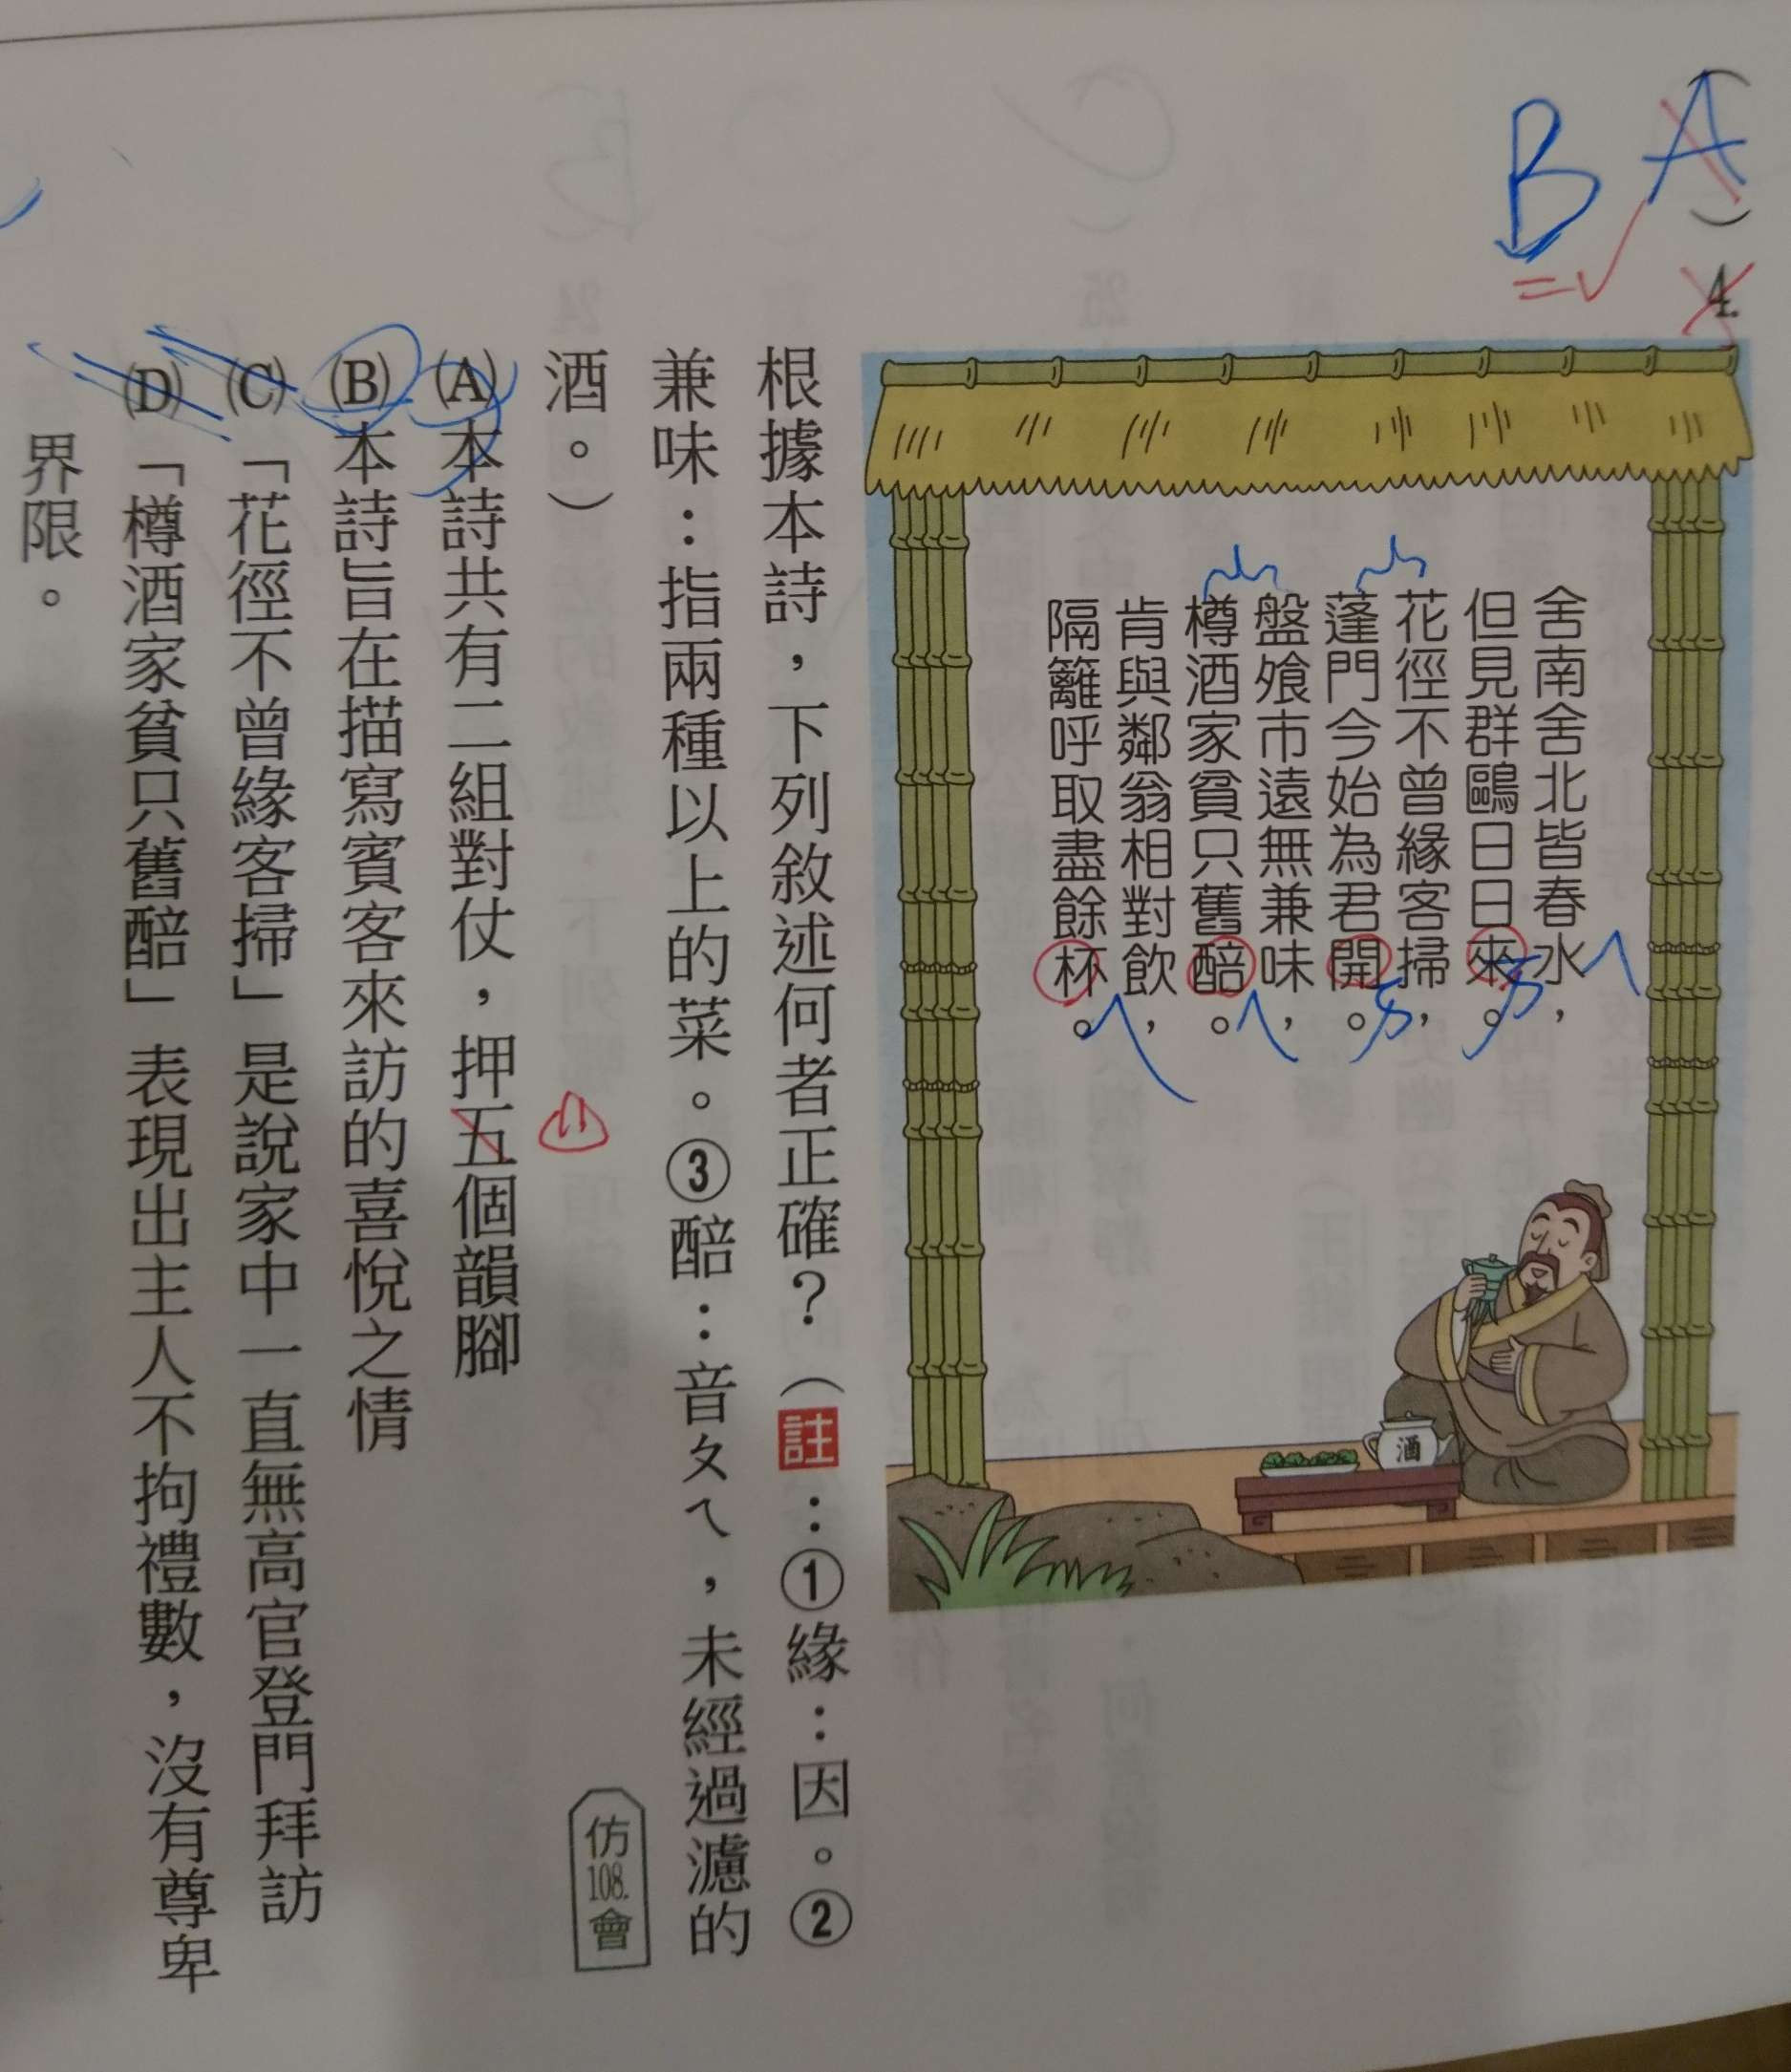 (A)4.
B
舍南舍北皆春水，
但見群鷗日日來。
花徑不曾緣客掃，
蓬門今始為君開。
盤飧市遠無兼味，
樽酒家貧只舊醅。
肯與鄰翁相對飲，
隔籬呼取盡餘杯。
ㄟ
ㄞ
ㄞ
ㄟ
ㄟ
酒
根據本詩，下列敘述何者正確？（註：①緣：因。②
兼味：指兩種以上的菜。③醅：音ㄆㄟ，未經過濾的
酒。）
仿108.會
(A)本詩共有二組對仗，押五個韻腳
(B)本詩旨在描寫賓客來訪的喜悅之情
(C)「花徑不曾緣客掃」是說家中一直無高官登門拜訪
(D)「樽酒家貧只舊醅」表現出主人不拘禮數，沒有尊卑
界限。